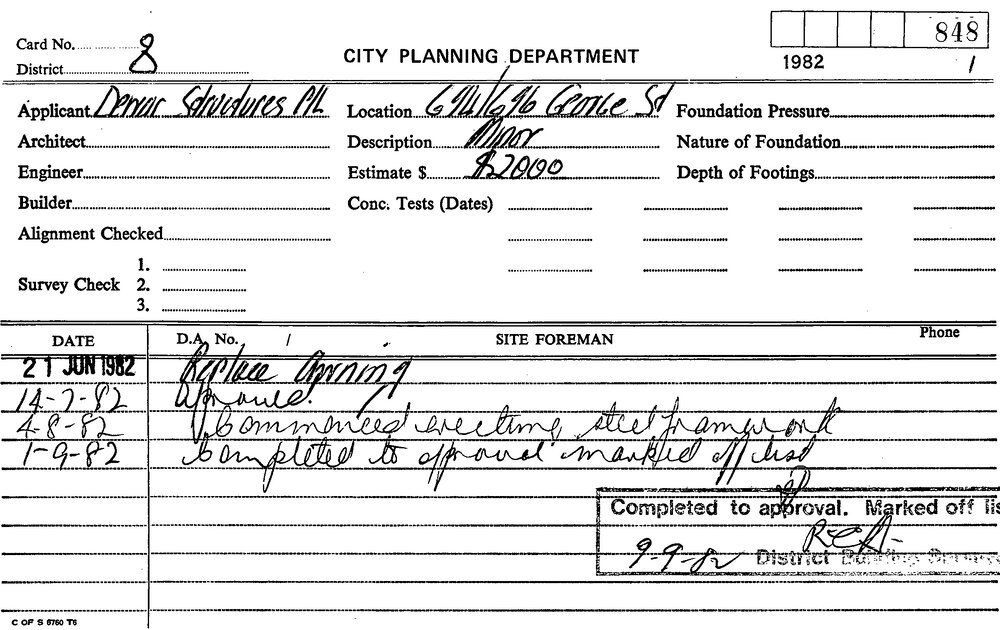 848
Card No.
District 8
CITY PLANNING DEPARTMENT
1982 1
Applicant Demar Structures P/L Location 694/696 George St Foundation Pressure
Architect Description Minor Nature of Foundation
Engineer Estimate $ $2000 Depth of Footings
Builder Conc. Tests (Dates)
Alignment Checked
1.
Survey Check 2.
3.
DATE D.A. No. / SITE FOREMAN Phone
21 JUN 1982 Replace Awning
14-7-82 Aproved.
4-8-82 Commenced erecting steel framework
1-9-82 Completed to aproval marked off list
Completed to approval. Marked off lis
9-9-82 District Building
C OF S 6760 T6